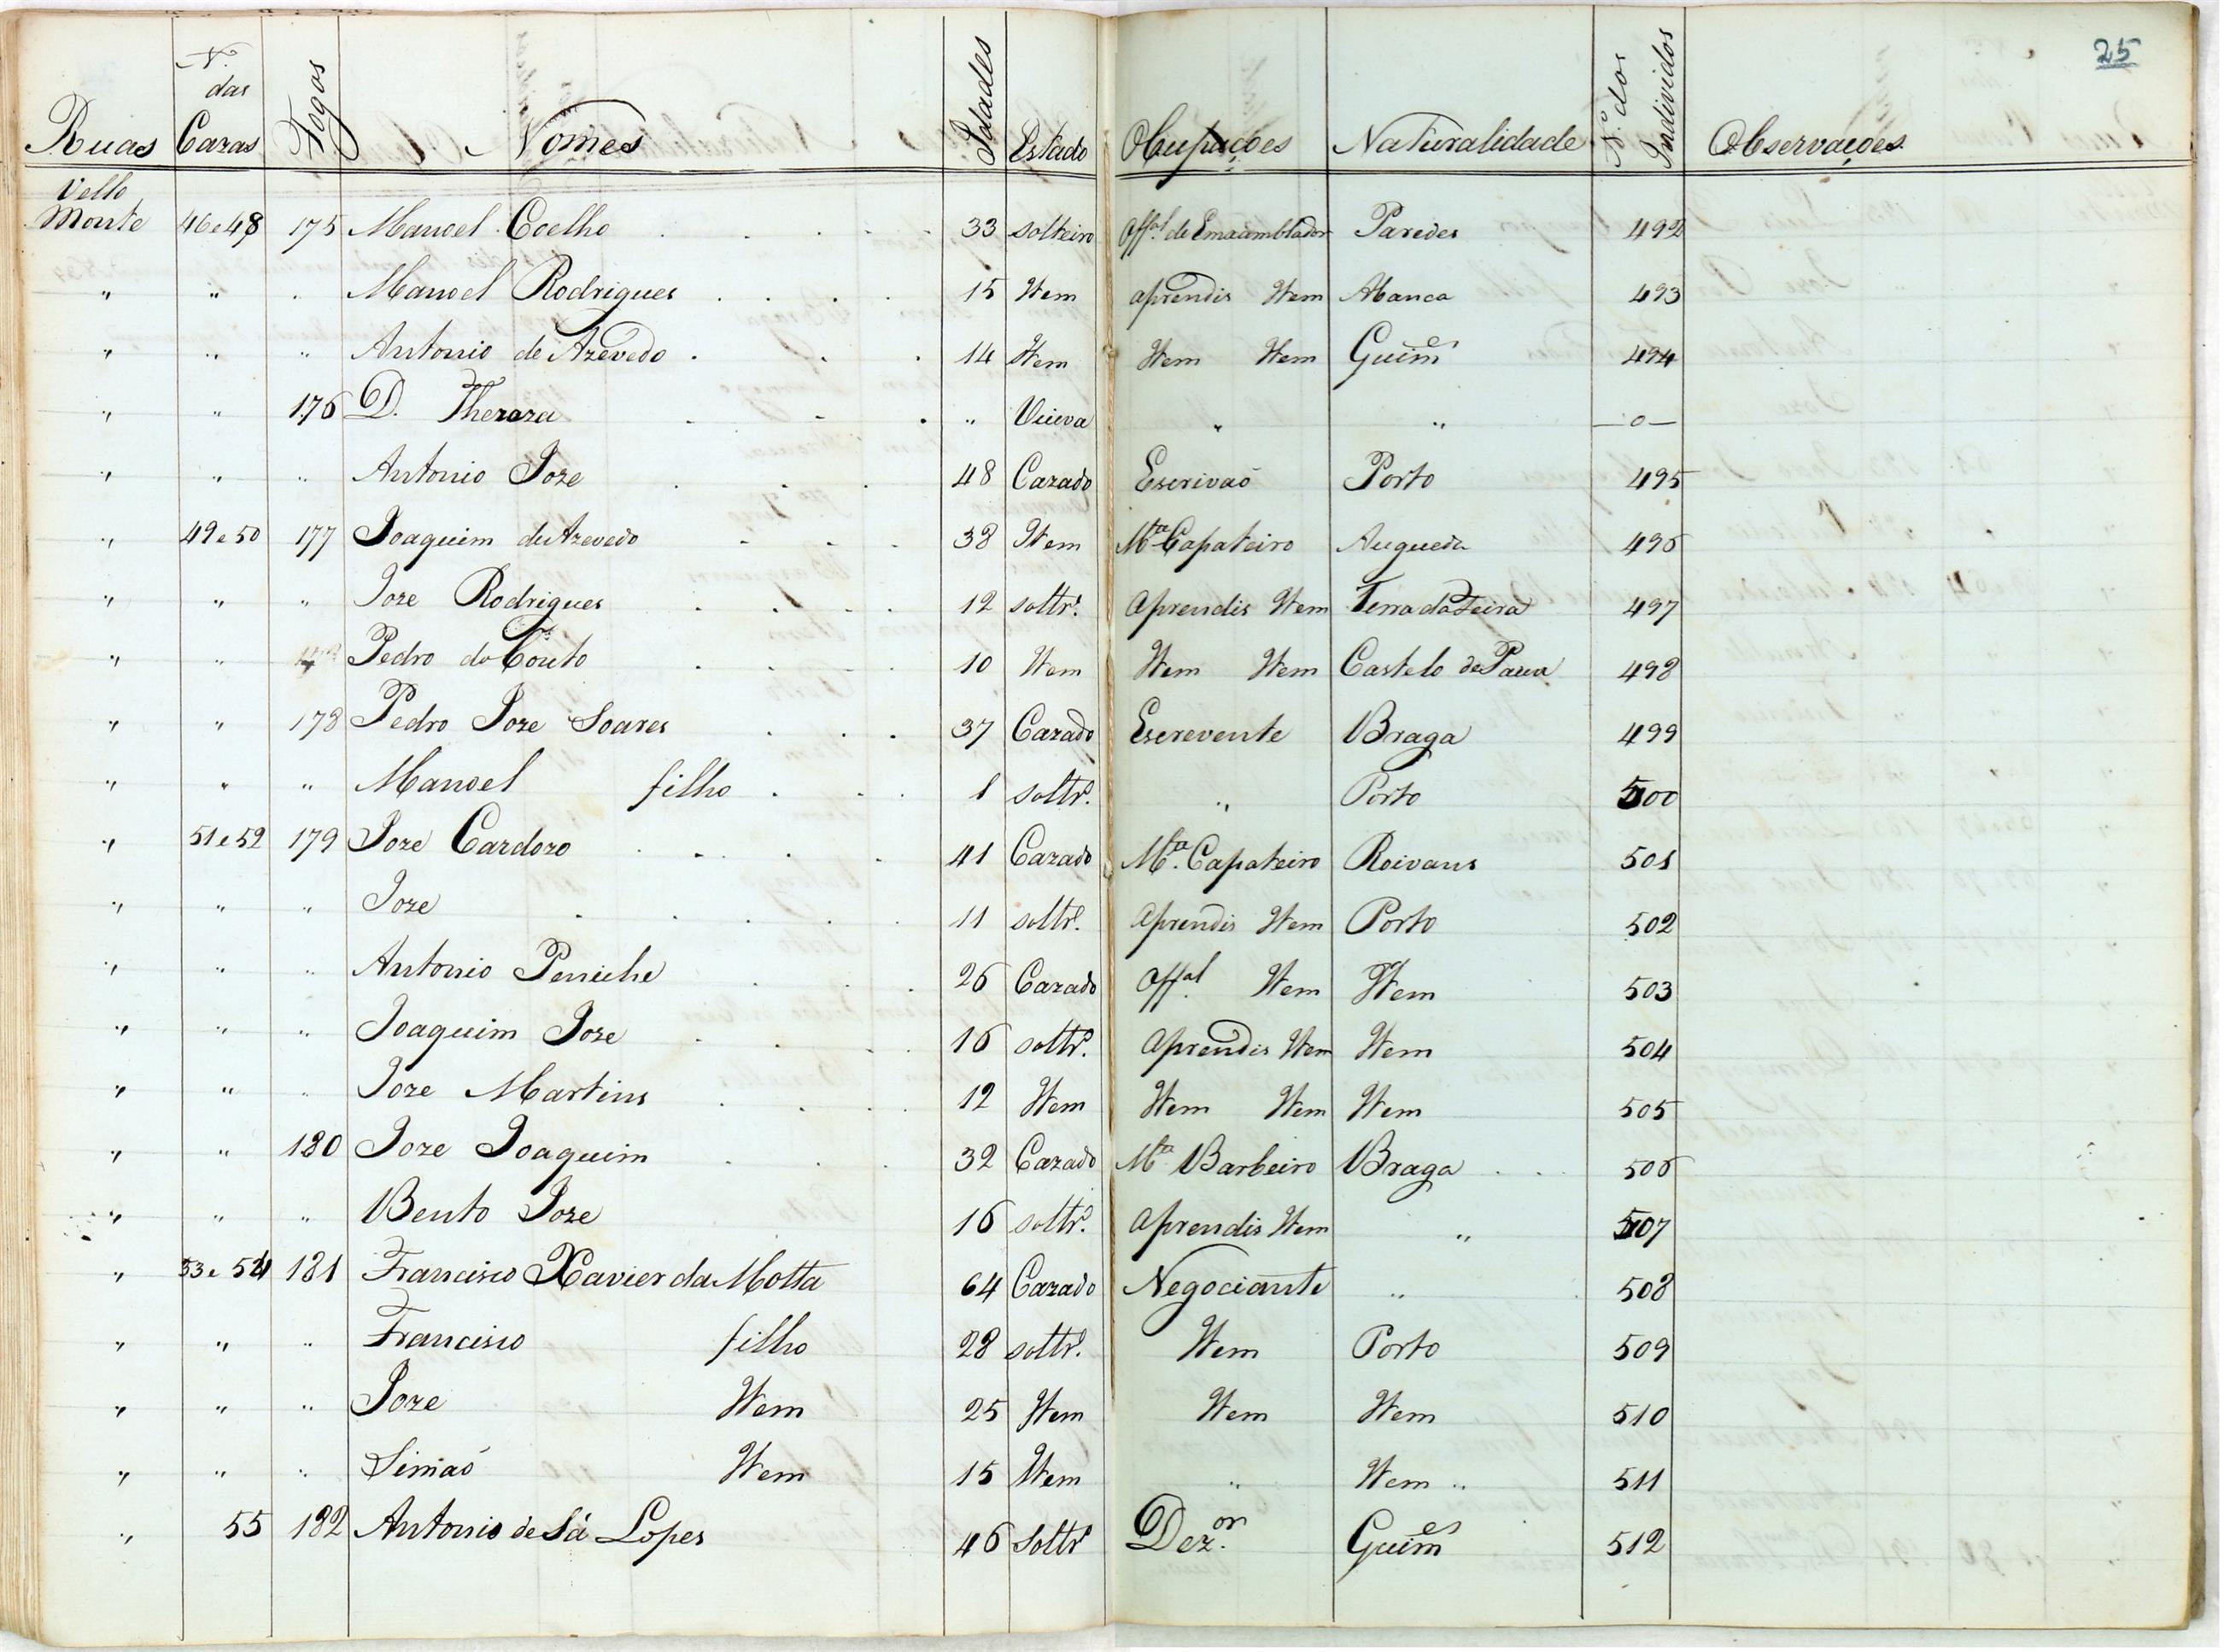 25
Ruas N.º das Cazas Fogos Nomes Idades Estado Ocupaçoes Naturalidade N.º dos Individos Observaçoes
Vello
Monte 46 e 48 175 Manoel Coelho 33 solteiro Off.al de Emsamblador Paredes 492
" " " Manoel Rodrigues 15 Item aprendis Item 493
" " " Antonio de Azevedo 14 Item Item Item Guim.es 494
" " 176 D. Thereza " Viuva " " —o—
" " " Antonio Joze 48 Cazado Escrivaõ Porto 495
" 49 e 50 177 Joaquim de Azevedo 38 Item M.e Çapateiro Augueda 496
" " " Joze Rodrigues 12 soltr.º Aprendis Item Terra da Feira 497
" " Pedro do Couto 10 Item Item Item Castelo de Paiva 498
" " 178 Pedro Joze Soares 37 Cazado Escrevente Braga 499
" " " Manoel filho 1 soltr.º " Porto 500
" 51 e 52 179 Joze Cardozo 41 Cazado M.e Çapateiro Roivans 501
" " " Joze 11 soltr.º Aprendis Item Porto 502
" " " Antonio Peniche 26 Cazado Off.al Item Item 503
" " " Joaquim Joze 16 soltr.º Aprendis Item Item 504
" " " Joze Martins 12 Item Item Item Item 505
" " 180 Joze Joaquim 32 Cazado M.e Barbeiro Braga 506
" " " Bento Joze 16 soltr.º Aprendis Item " 507
" 53 e 54 181 Francisco Xavier da Motta 64 Cazado Negociante " 508
" " " Francisco filho 28 soltr.º Item Porto 509
" " " Joze Item 25 Item Item Item 510
" " " Simaõ Item 15 Item " Item 511
" 55 182 Antonio de Sá Lopes 46 soltr.º Dez.or Guim.es 512